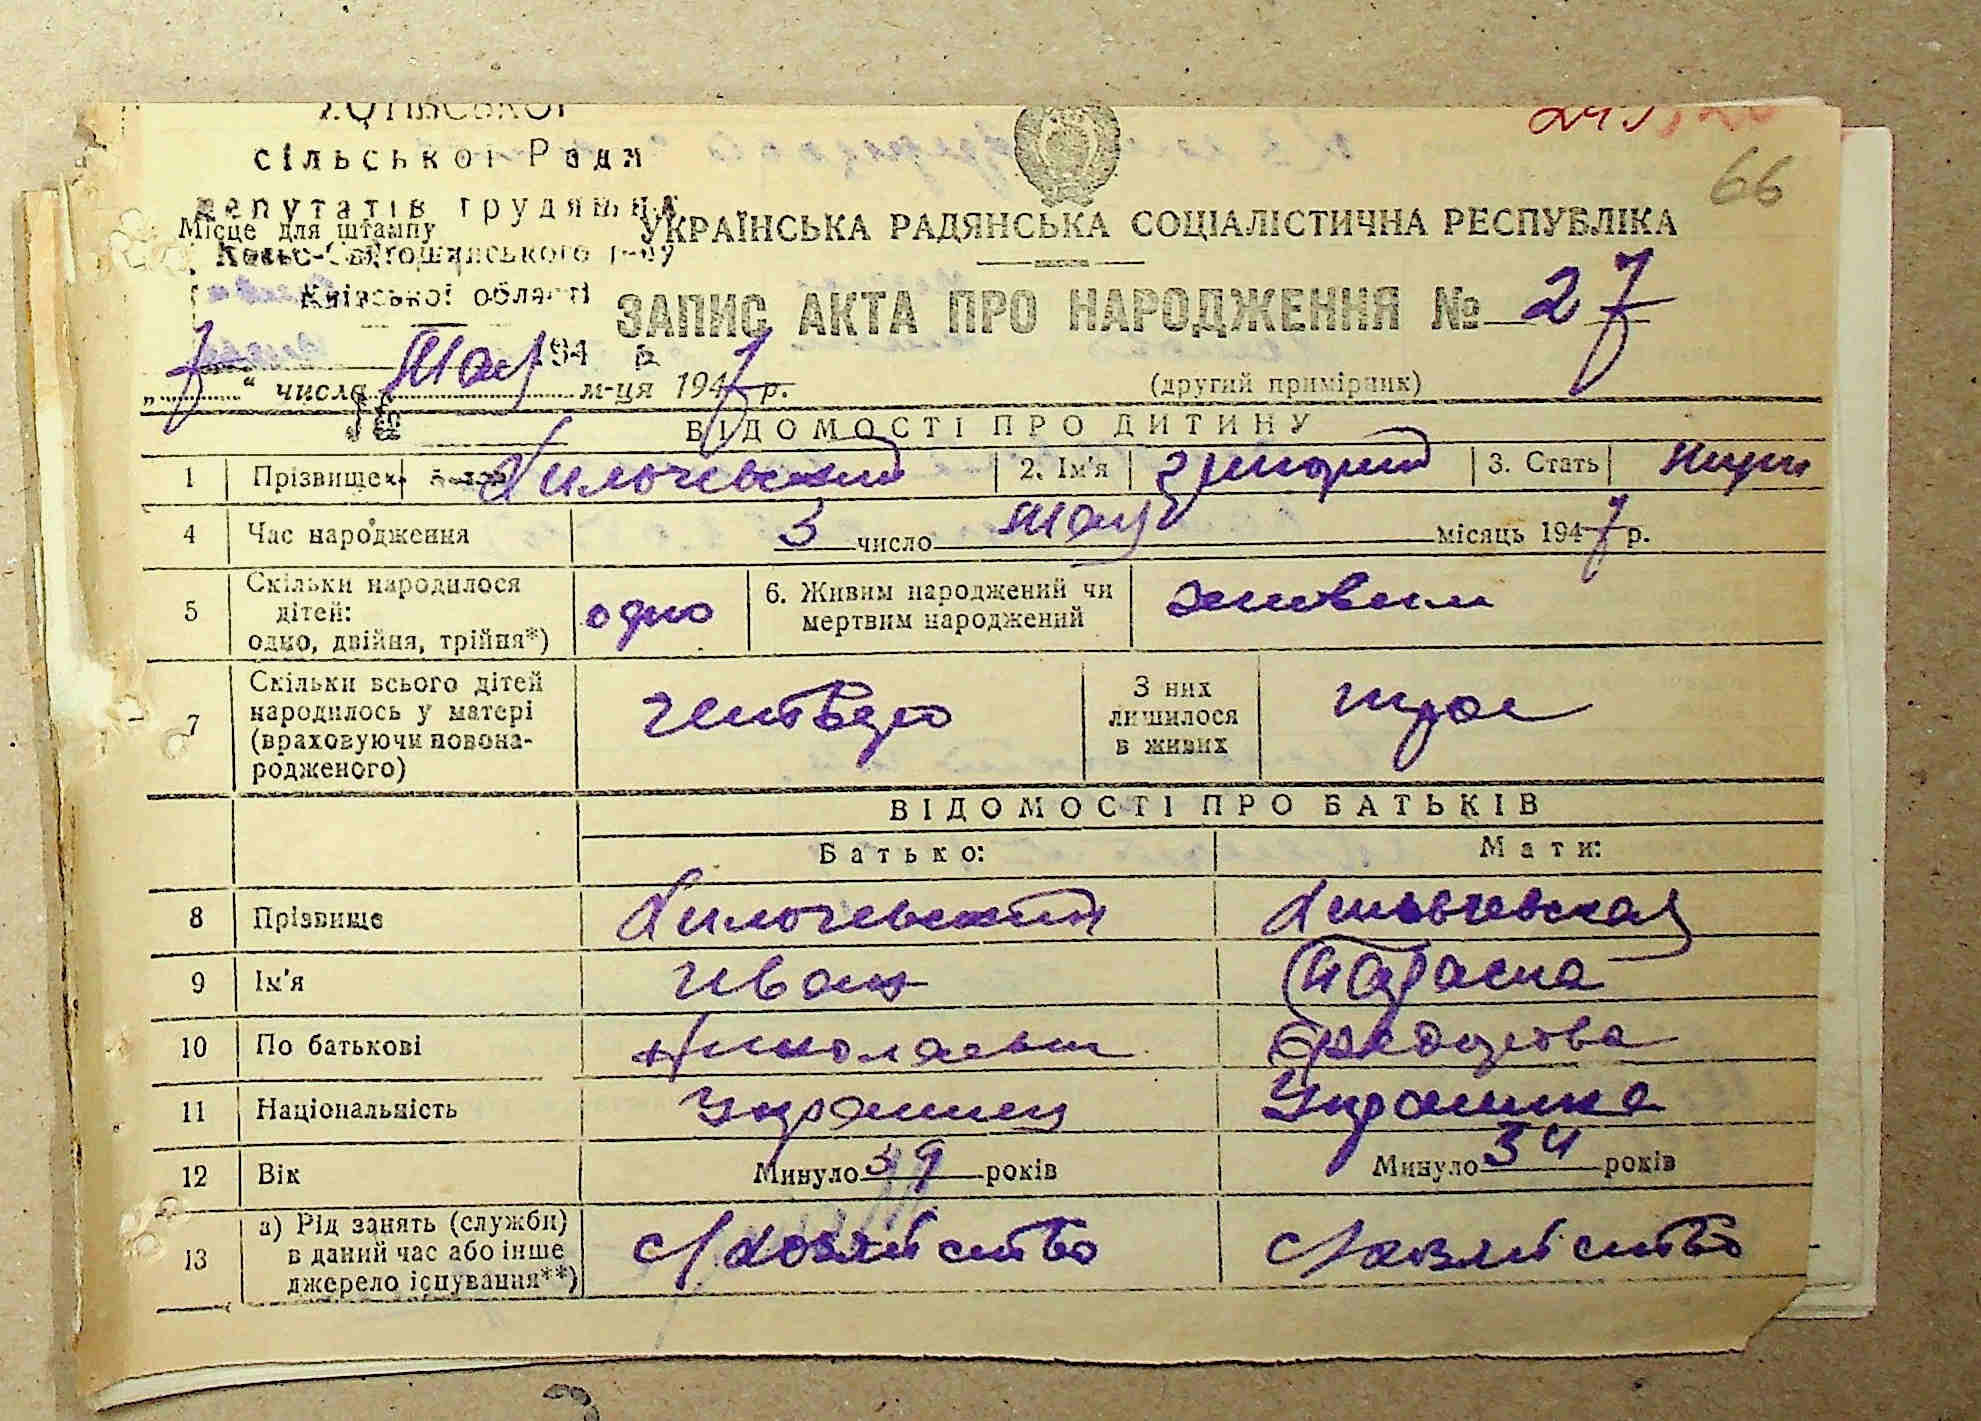 сільської Ради
депутатів трудящих
Місце для штампу
Києво-Святошинського р-ну
Київської області
66
УКРАЇНСЬКА РАДЯНСЬКА СОЦІАЛІСТИЧНА РЕСПУБЛІКА
ЗАПИС АКТА ПРО НАРОДЖЕННЯ № 27
(другий примірник)
194 р.
„7“ числа мая м-ця 1947 р.
ВІДОМОСТІ ПРО ДИТИНУ
1 Прізвище 2. Ім'я Григорий 3. Стать муж
4 Час народження 3 число мая місяць 1947 р.
5 Скільки народилося дітей: одно, двійня, трійня*) одно 6. Живим народжений чи мертвим народжений живым
7 Скільки всього дітей народилось у матері (враховуючи новонародженого) четверо З них лишилося в живих трое
ВІДОМОСТІ ПРО БАТЬКІВ
Батько: Мати:
8 Прізвище
9 Ім'я Иван Параска
10 По батькові Николаевич Федотовна
11 Національність Украинец Украинка
12 Вік Минуло 39 років Минуло 34 років
13 а) Рід занять (служби) в даний час або інше джерело існування**) с/хозяйство с/хозяйство